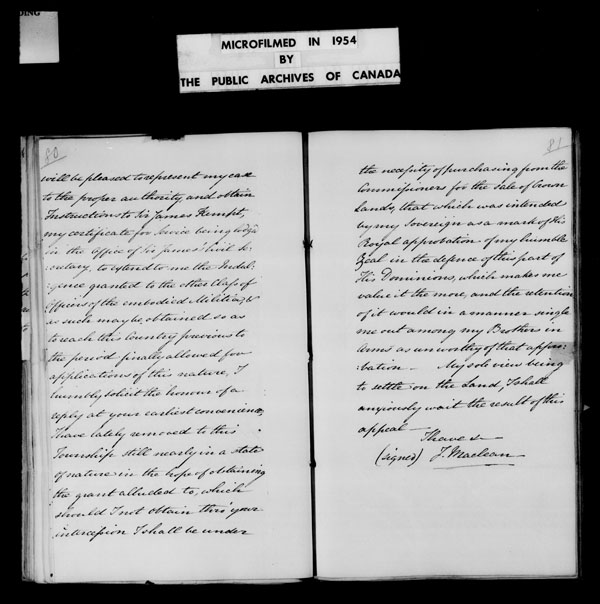 DING
MICROFILMED IN 1954
BY
THE PUBLIC ARCHIVES OF CANADA
80
will be pleased to represent my case
to the proper authority, and obtain
Instructions to Sir James Kempt,
my certificate for Service being lodged
in the Office of Sir James' Civil Se-
cretary, to extend to me the Indul-
gence granted to the other Class of
Officers of the embodied Militia, &
as such may be obtained so as
to reach this Country previous to
the period finally allowed for
applications of this nature, I
humbly solicit the honour of a
reply at your earliest convenience,
I have lately removed to this
Township still nearly in a state
of nature in the hope of obtaining
the grant alluded to, which
should I not obtain thro' your
intercession I shall be under
81
the necessity of purchasing from the
Commissioners for the Sale of Crown
Lands, that which was intended
by my Sovereign as a mark of His
Royal approbation of my humble
Zeal in the defence of this part of
His Dominions, which makes me
value it the more, and the retention
of it would in a manner single
me out among my Brothers in
Arms as unworthy of that appro-
bation — My sole view being
to settle on the Land, I shall
anxiously wait the result of this
appeal —
I have &c
(signed) J. Maclean